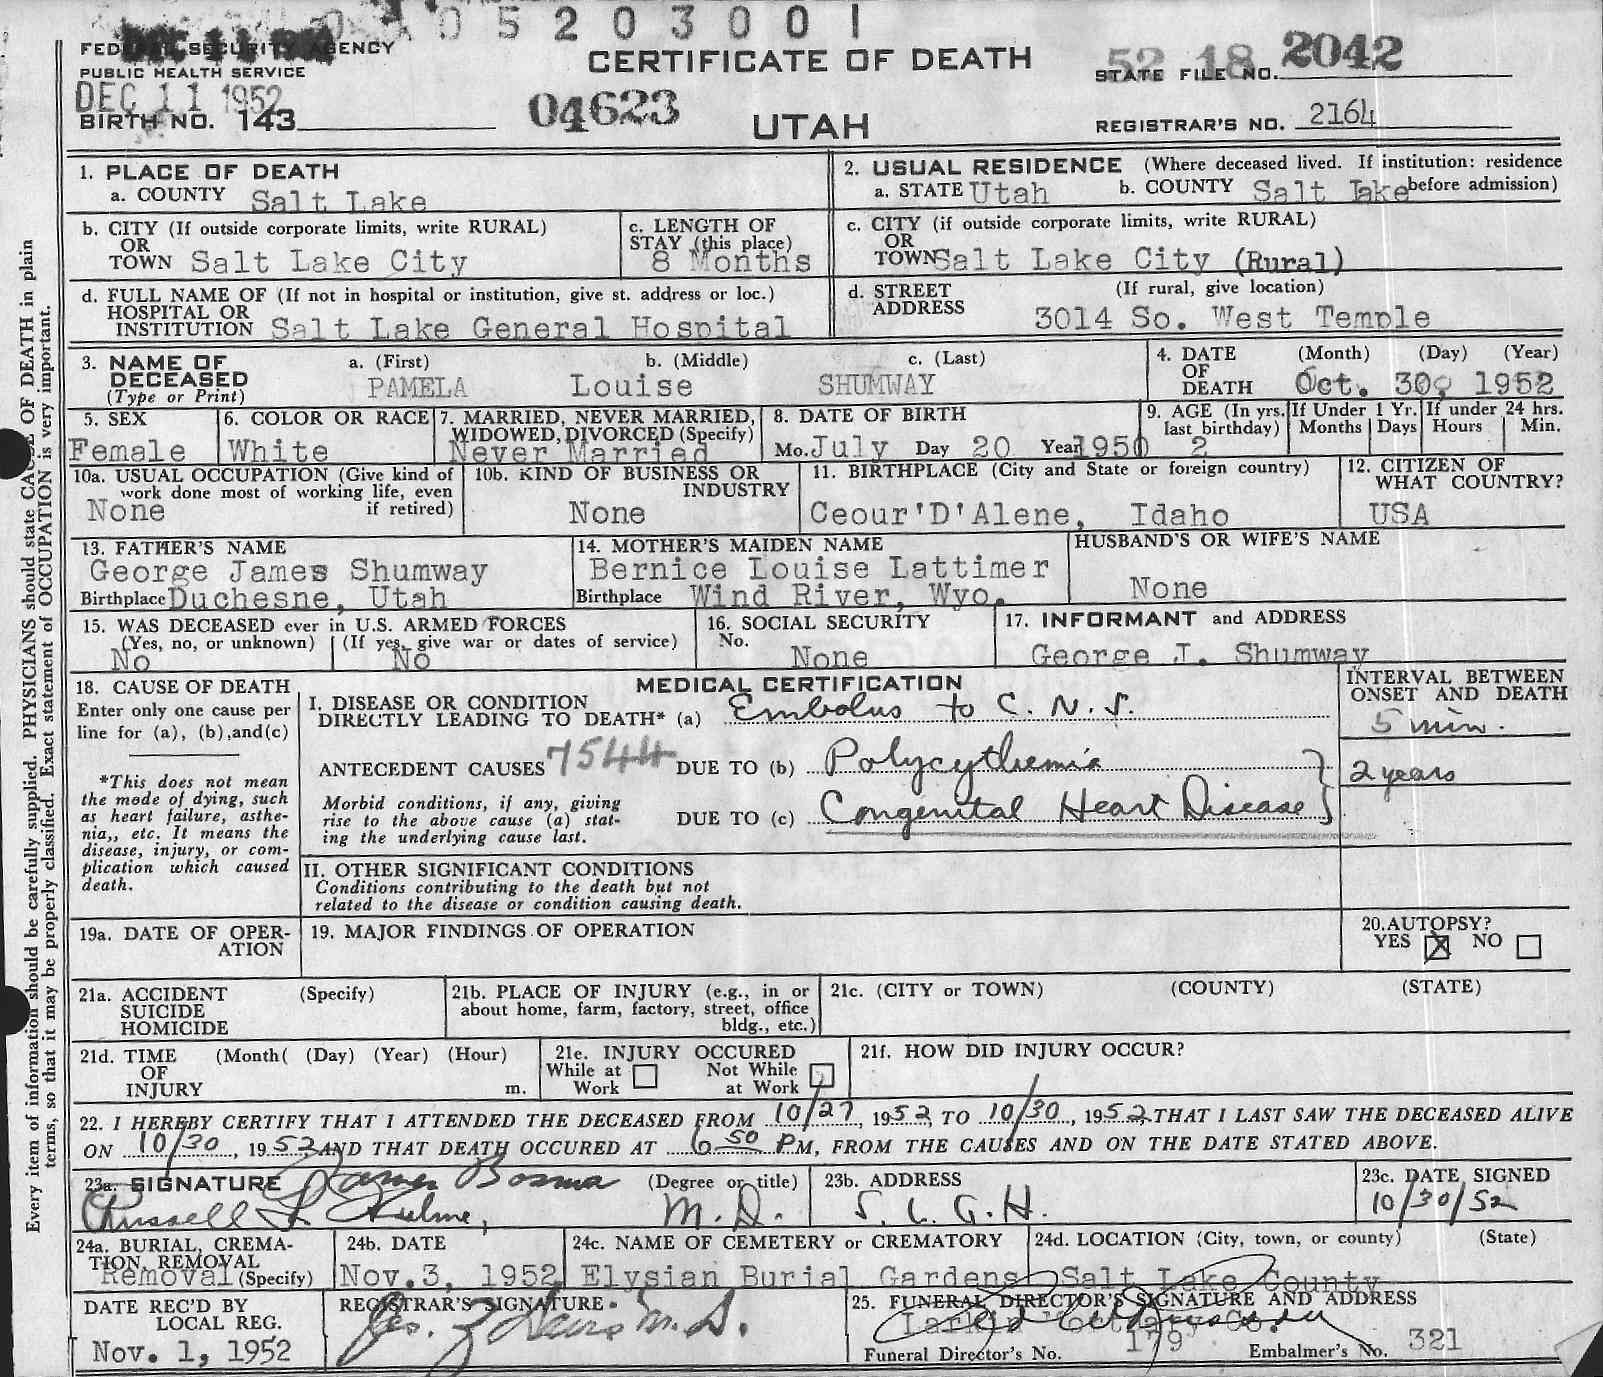 0 5 2 0 3 0 0 1
FEDERAL SECURITY AGENCY
PUBLIC HEALTH SERVICE
DEC 11 1952
BIRTH NO. 143
CERTIFICATE OF DEATH
04623
UTAH
52 18 2042
STATE FILE NO.
REGISTRAR'S NO. 2164
Every item of information should be carefully supplied. PHYSICIANS should state CAUSE OF DEATH in plain
terms, so that it may be properly classified. Exact statement of OCCUPATION is very important.
1. PLACE OF DEATH
a. COUNTY Salt Lake
2. USUAL RESIDENCE (Where deceased lived. If institution: residence
a. STATE Utah b. COUNTY Salt Lake before admission)
b. CITY (If outside corporate limits, write RURAL)
OR
TOWN Salt Lake City
c. LENGTH OF
STAY (this place)
8 Months
c. CITY (if outside corporate limits, write RURAL)
OR
TOWN Salt Lake City (Rural)
d. FULL NAME OF (If not in hospital or institution, give st. address or loc.)
HOSPITAL OR
INSTITUTION Salt Lake General Hospital
d. STREET (If rural, give location)
ADDRESS
3014 So. West Temple
3. NAME OF a. (First) b. (Middle) c. (Last)
DECEASED PAMELA Louise SHUMWAY
(Type or Print)
4. DATE (Month) (Day) (Year)
OF
DEATH Oct. 30, 1952
5. SEX
Female
6. COLOR OR RACE
White
7. MARRIED, NEVER MARRIED,
WIDOWED, DIVORCED (Specify)
Never Married
8. DATE OF BIRTH
Mo. July Day 20 Year 1950
9. AGE (In yrs. last birthday)
2
If Under 1 Yr.
Months Days
If under 24 hrs.
Hours Min.
10a. USUAL OCCUPATION (Give kind of
work done most of working life, even
if retired)
None
10b. KIND OF BUSINESS OR
INDUSTRY
None
11. BIRTHPLACE (City and State or foreign country)
Ceour'D'Alene, Idaho
12. CITIZEN OF
WHAT COUNTRY?
USA
13. FATHER'S NAME
George James Shumway
Birthplace Duchesne, Utah
14. MOTHER'S MAIDEN NAME
Bernice Louise Lattimer
Birthplace Wind River, Wyo.
HUSBAND'S OR WIFE'S NAME
None
15. WAS DECEASED ever in U.S. ARMED FORCES
(Yes, no, or unknown) (If yes, give war or dates of service)
No No
16. SOCIAL SECURITY
No.
None
17. INFORMANT and ADDRESS
George J. Shumway
18. CAUSE OF DEATH
Enter only one cause per
line for (a), (b), and(c)
*This does not mean
the mode of dying, such
as heart failure, asthe-
nia,, etc. It means the
disease, injury, or com-
plication which caused
death.
MEDICAL CERTIFICATION
I. DISEASE OR CONDITION
DIRECTLY LEADING TO DEATH* (a) Embolus to C. N. S.
ANTECEDENT CAUSES 7544 DUE TO (b) Polycythemia
Morbid conditions, if any, giving
rise to the above cause (a) stat-
ing the underlying cause last.
DUE TO (c) Congenital Heart Disease
INTERVAL BETWEEN
ONSET AND DEATH
5 min.
2 years
II. OTHER SIGNIFICANT CONDITIONS
Conditions contributing to the death but not
related to the disease or condition causing death.
19a. DATE OF OPER-
ATION
19. MAJOR FINDINGS OF OPERATION
20. AUTOPSY?
YES X NO
21a. ACCIDENT (Specify)
SUICIDE
HOMICIDE
21b. PLACE OF INJURY (e.g., in or
about home, farm, factory, street, office
bldg., etc.)
21c. (CITY or TOWN) (COUNTY) (STATE)
21d. TIME (Month( (Day) (Year) (Hour)
OF
INJURY m.
21e. INJURY OCCURED
While at Work Not While at Work
21f. HOW DID INJURY OCCUR?
22. I HEREBY CERTIFY THAT I ATTENDED THE DECEASED FROM 10/27, 1952, TO 10/30, 1952, THAT I LAST SAW THE DECEASED ALIVE
ON 10/30, 1952 AND THAT DEATH OCCURED AT 6 50 PM, FROM THE CAUSES AND ON THE DATE STATED ABOVE.
23a. SIGNATURE James Bosma (Degree or title)
Russell M.D.
23b. ADDRESS
S. L. G. H.
23c. DATE SIGNED
10/30/52
24a. BURIAL, CREMA-
TION, REMOVAL
Removal (Specify)
24b. DATE
Nov. 3, 1952
24c. NAME OF CEMETERY or CREMATORY
Elysian Burial Gardens
24d. LOCATION (City, town, or county) (State)
Salt Lake County
DATE REC'D BY
LOCAL REG.
Nov. 1, 1952
REGISTRAR'S SIGNATURE
M.D.
25. FUNERAL DIRECTOR'S SIGNATURE AND ADDRESS
Larkin
Funeral Director's No. 179 Embalmer's No. 321